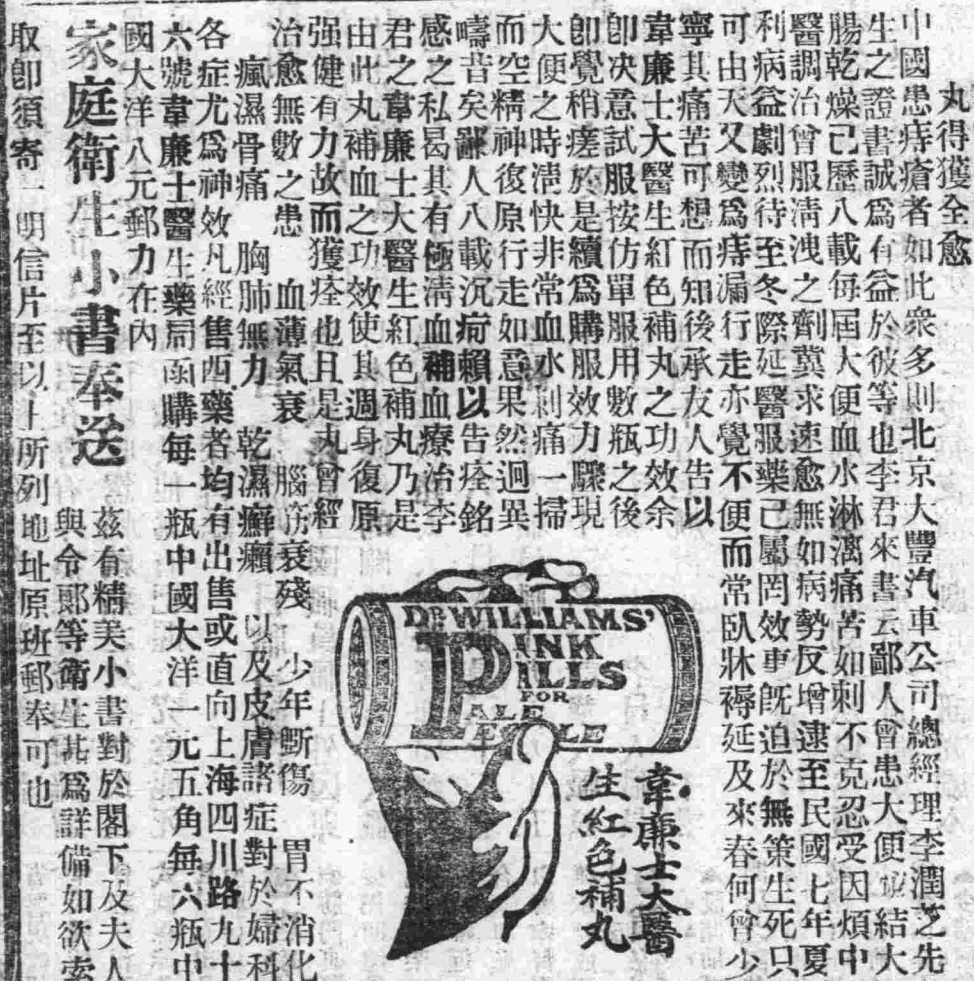 丸得獲全愈
中國患痔瘡者如此衆多則北京大豐汽車公司總經理李潤芝先
生之證書誠爲有益於彼等也李君來書云鄙人曾患大便結大
腸乾燥已歷八載每屆大便血水淋漓痛苦如刺不克忍受因煩中
醫調治曾服淸洩之劑冀求速愈無如病勢反增逮至民國七年夏
利病益劇烈待至冬際延醫服藥已屬罔效車旣迫於無策生死只
可由天又變爲痔漏行走亦覺不便而常臥牀褥延及來春何曾少
寧其痛苦可想而知後承友人告以
韋廉士大醫生紅色補丸之功效余
卽决意試服按仿單服用數瓶之後
卽覺稍瘥於是續爲購服效力驟現
大便之時淸快非常血水刺痛一掃
而空精神復原行走如意果然迥異
疇昔矣鄙人八載沉疴賴以告痊銘
感之私曷其有極淸血補血療治李
君之韋廉士大醫生紅色補丸乃是
由此丸補血之功效使其週身復原
强健有力故而獲痊也且是丸曾經
治愈無數之患 血薄氣衰 腦筋衰殘 少年斲傷 胃不消化
瘋濕骨痛 胸肺無力 乾濕癬癩 以及皮膚諸症對於婦科
各症尤爲神效凡經售西藥者均有出售或直向上海四川路九十
六號韋廉士醫生藥局函購每一瓶中國大洋一元五角每六瓶中
國大洋八元郵力在內
家庭衛生小書奉送
茲有精美小書對於閣下及夫人
與令郞等衛生甚爲詳備如欲索
取卽須寄一明信片至以上所列地址原班郵奉可也
DR WILLIAMS'
PINK
PILLS
FOR
PALE
PEOPLE
韋廉士大醫
生紅色補丸